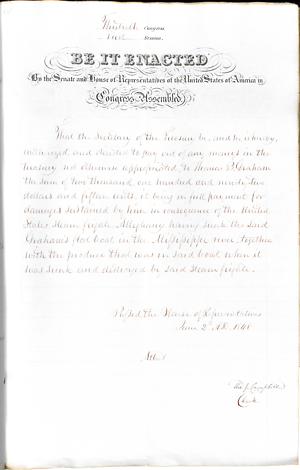 Thirtieth Congress
First Session.
BE IT ENACTED
By the Senate and House of Representatives of the United States of America in
Congress Assembled
That the Secretary of the Treasury be, and he is hereby,
authorized and directed to pay out of any money in the
treasury not otherwise appropriated, to Thomas P. Graham
the sum of two thousand, one hundred and ninety-two
dollars and fifteen cents, it being in full payment for
damages sustained by him in consequence of the United
States Steam frigate Alleghany having sunk the said
Graham's flat boat in the Mississippi river, together
with the produce that was in said boat when it
was sunk and destroyed by said Steam frigate.
Passed the House of Representatives
June 2d A.D. 1848
Attest
Tho. J. Campbell
Clerk